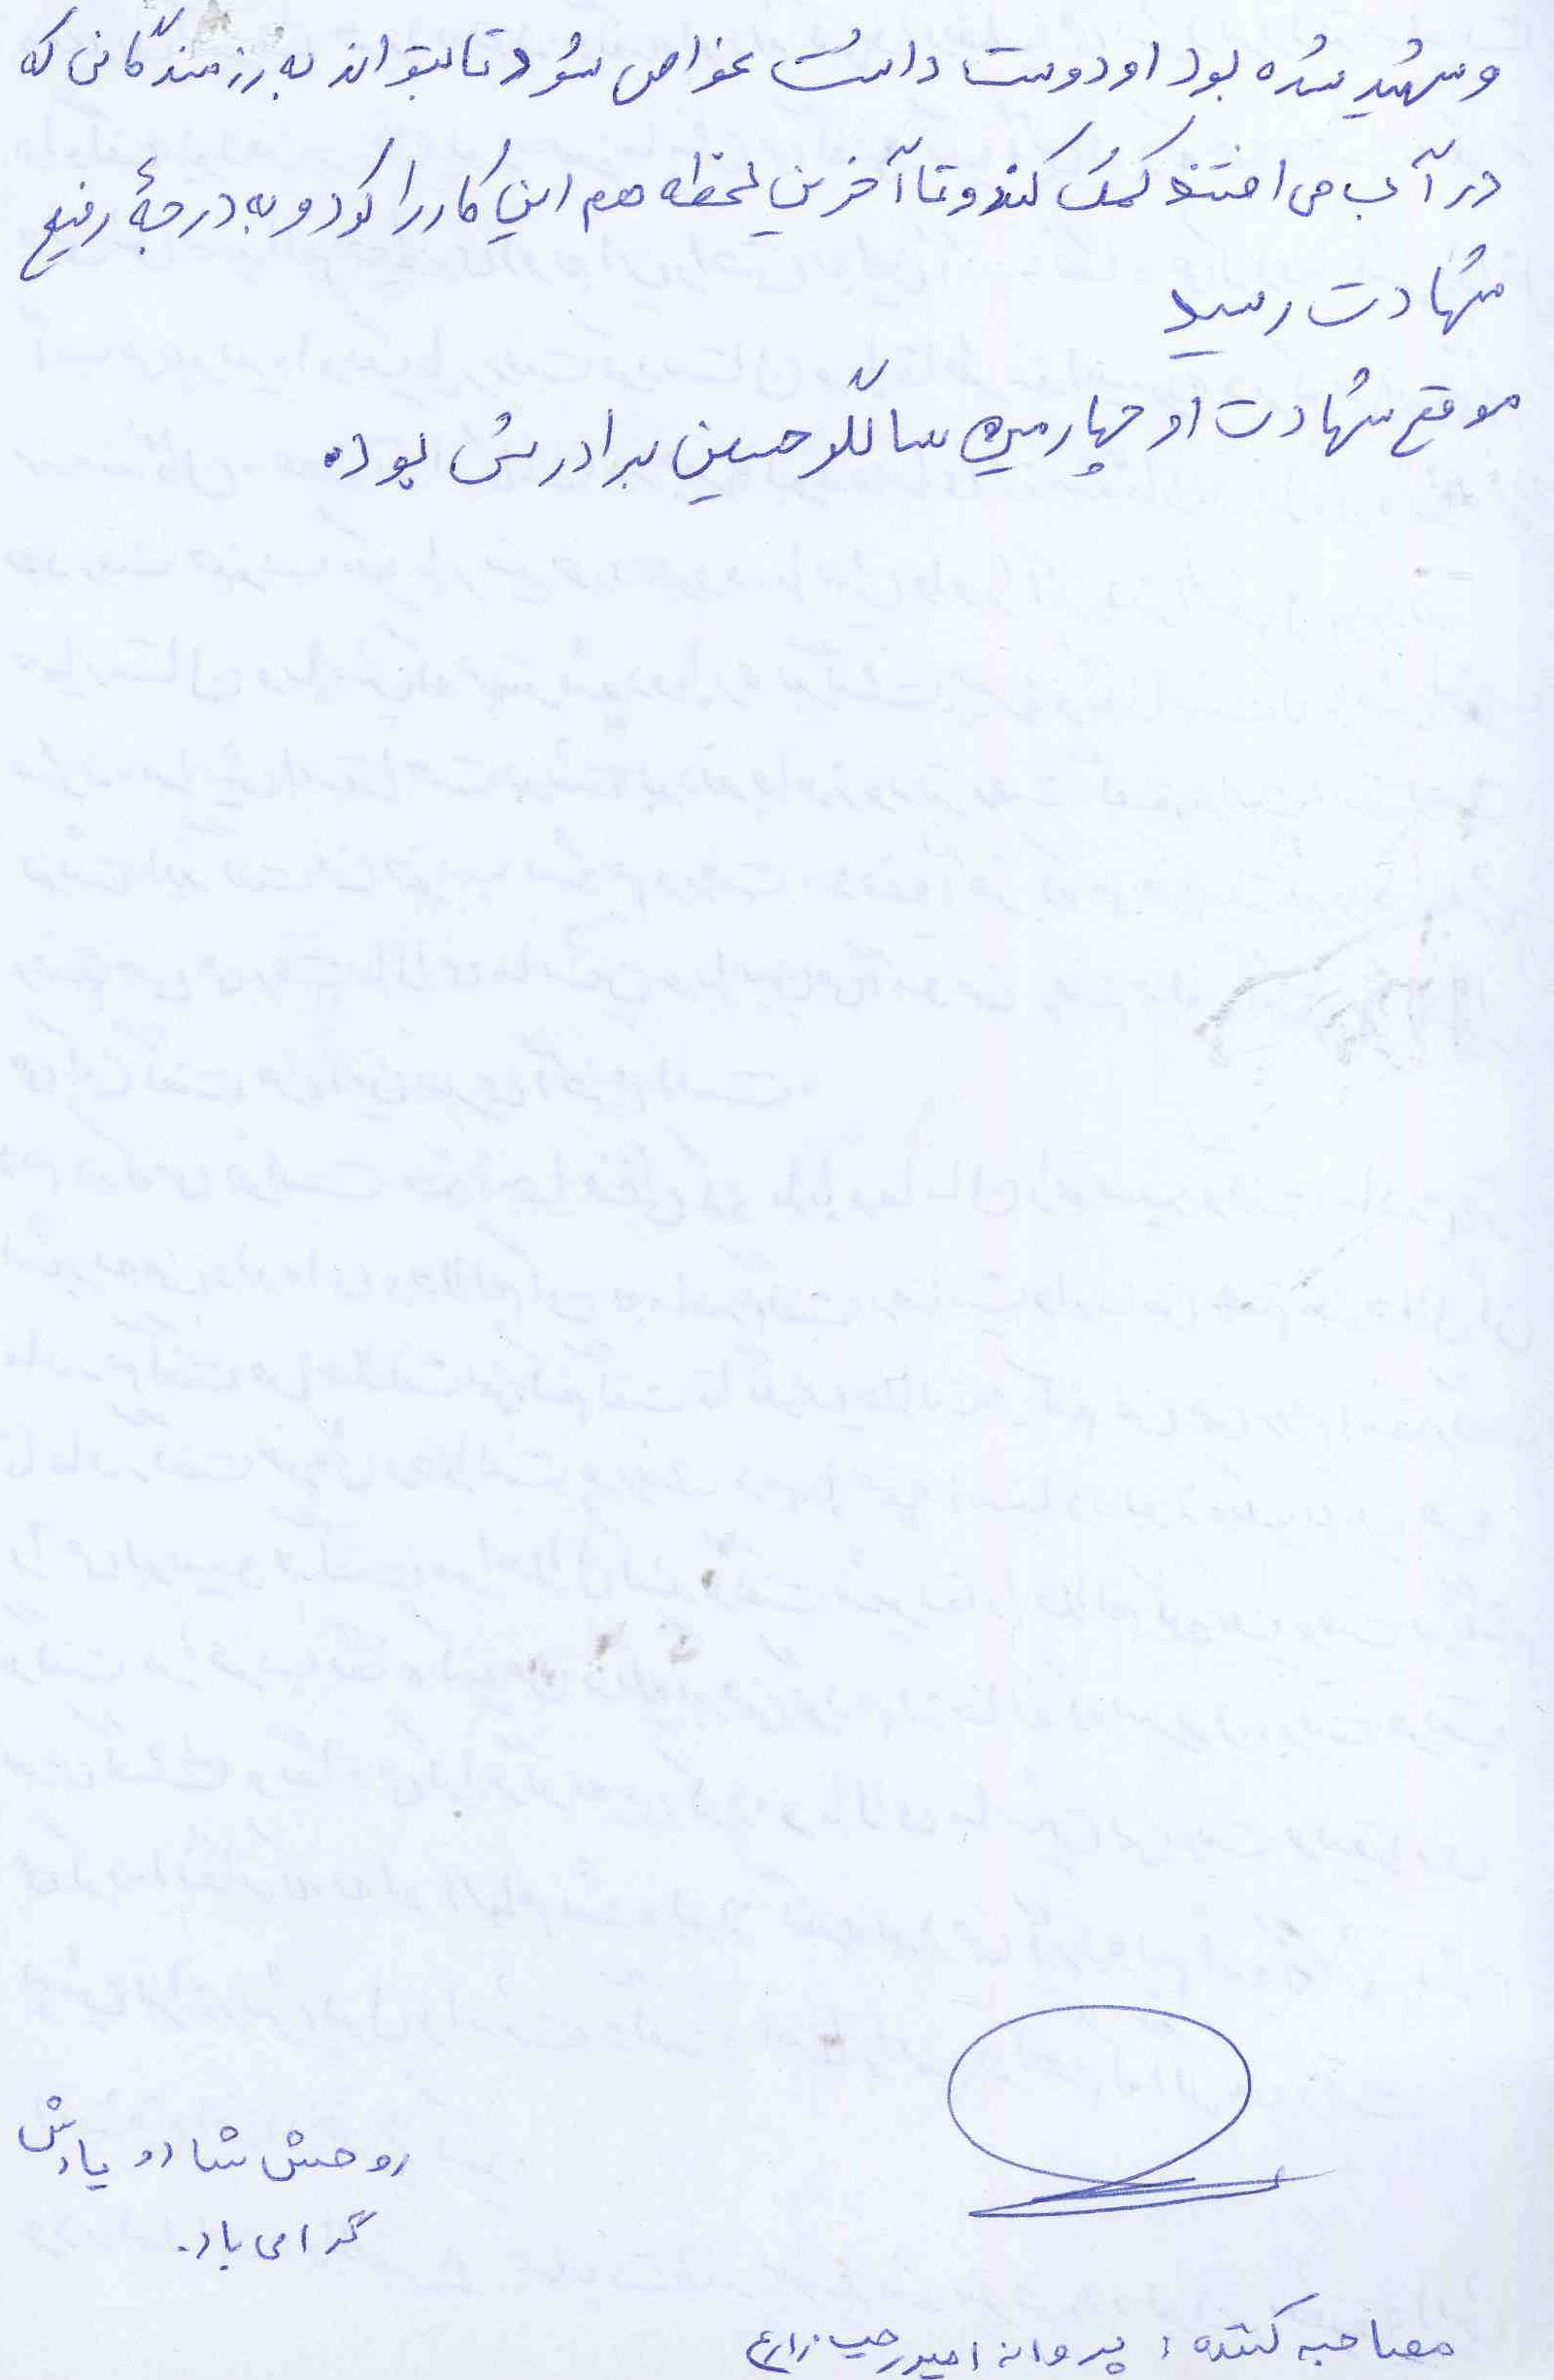 و شهید شده بود او دوست داشت غواص شود تا بتواند به رزمندگانی که
در آب می افتند کمک کند و تا آخرین لحظه هم این کار را کرد و به درجهٔ رفیع
شهادت رسید
موقع شهادت او چهارمین سالگرد حسین برادرش بوده.
روحش شاد و یادش
گرامی باد.
مصاحبه کننده : پروانه امیر رجب زارع